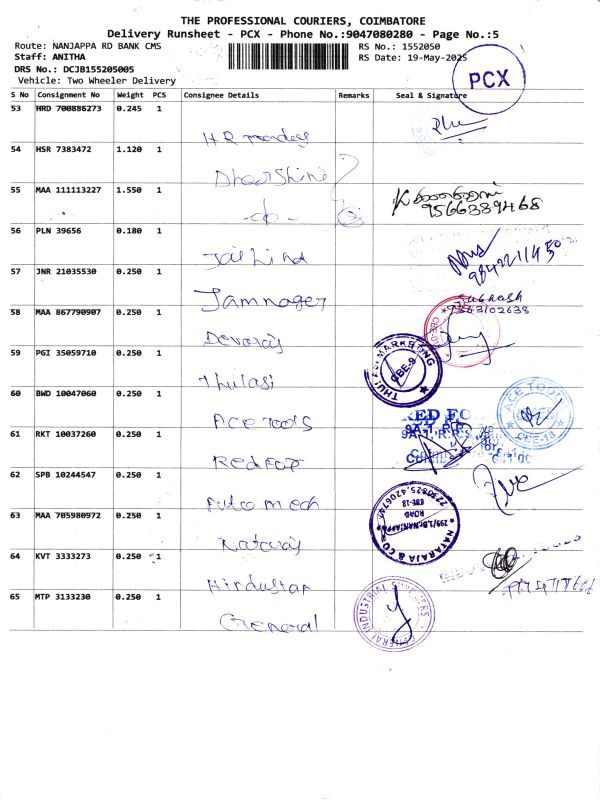 THE PROFESSIONAL COURIERS, COIMBATORE
Delivery Runsheet - PCX - Phone No.:9047080280 - Page No.:5
Route: NANJAPPA RD BANK CMS
RS No.: 1552050
Staff: ANITHA
RS Date: 19-May-2025
DRS No.: DCJB155205005
Vehicle: Two Wheeler Delivery
PCX
S No Consignment No Weight PCS Consignee Details Remarks Seal & Signature
53 HRD 700886273 0.245 1
54 HSR 7383472 1.120 1
Dharshini
55 MAA 111113227 1.550 1
9566339468
56 PLN 39656 0.180 1
Jaihind
57 JNR 21035530 0.250 1
Jamnager
Subhash
9363102638
58 MAA 867790907 0.250 1
Devaraj
59 PGI 35059710 0.250 1
Thulasi
THULASI MARKETING
CBE-9
60 BWD 10047060 0.250 1
ACE TOOLS
ACE TOOLS
CBE-18
61 RKT 10037260 0.250 1
RedFox
RED FO
62 SPB 10244547 0.250 1
Auto mech
63 MAA 705980972 0.250 1
Nataraj
NATARAJA & CO
ROAD
CBE-18
64 KVT 3333273 0.250 1
Hindustan
65 MTP 3133230 0.250 1
General
GENERAL INDUSTRIAL